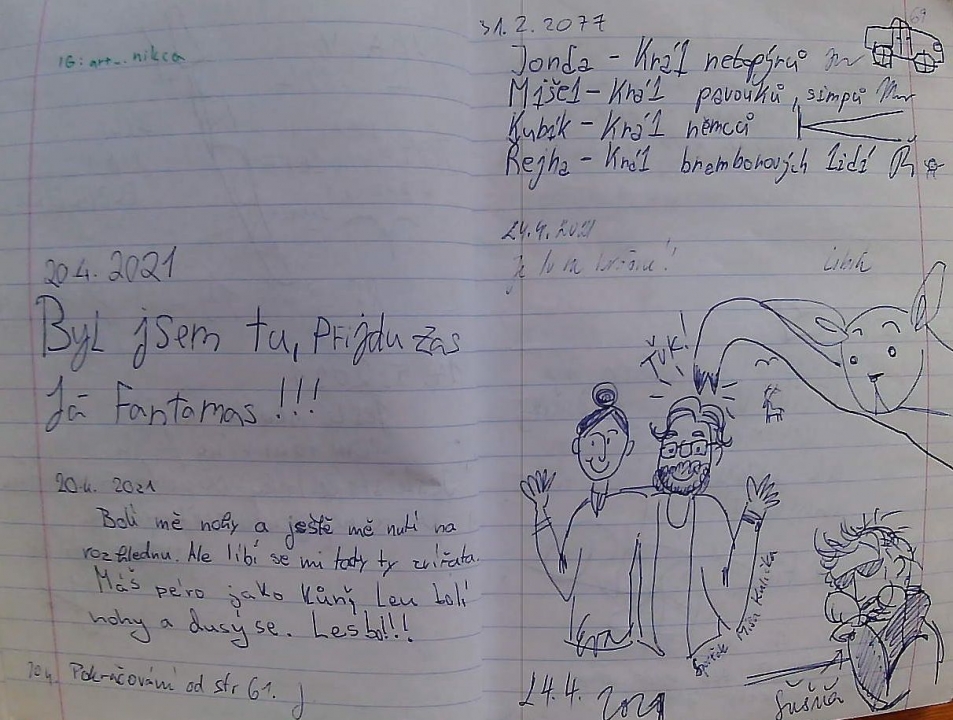 IG: art_. nikca
20.4. 2021
Byl jsem tu, přijdu zas
Já Fantamas !!!
20.4. 2021
Bolí mě nohy a ještě mě nutí na
rozhlednu. Ale líbí se mi tady ty zvířata.
Máš péro jako kůň, Leu bolí
nohy a dusý se. Lesbo!!!
Pokračování od str 61.
69
31.2. 2077
Jonda - Král netopýrů
Mišel - Král pavouků, simpů
Kubík - Král němců
Řejha - Král bramborových lidí
24.4. 2021
Je to na
ŤUK!
24.4. 2021